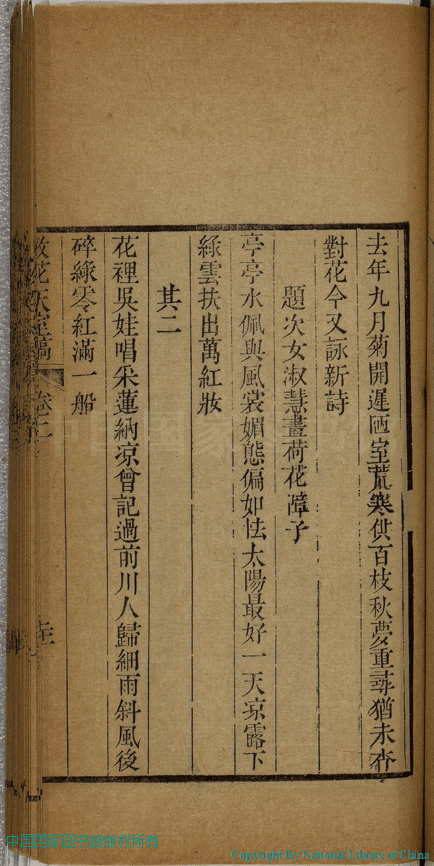 去年九月菊開遲匝室荒寒供百枝秋夢重尋猶未杳
對花今又詠新詩
題次女淑慧畫荷花障子
亭亭水佩與風裳媚態偏如怯太陽最好一天凉露下
綠雲扶出萬紅妝
其二
花裡吳娃唱采蓮納凉曾記過前川人歸細雨斜風後
碎綠零紅滿一船
花 稿 卷二
Copyright By National Library of China